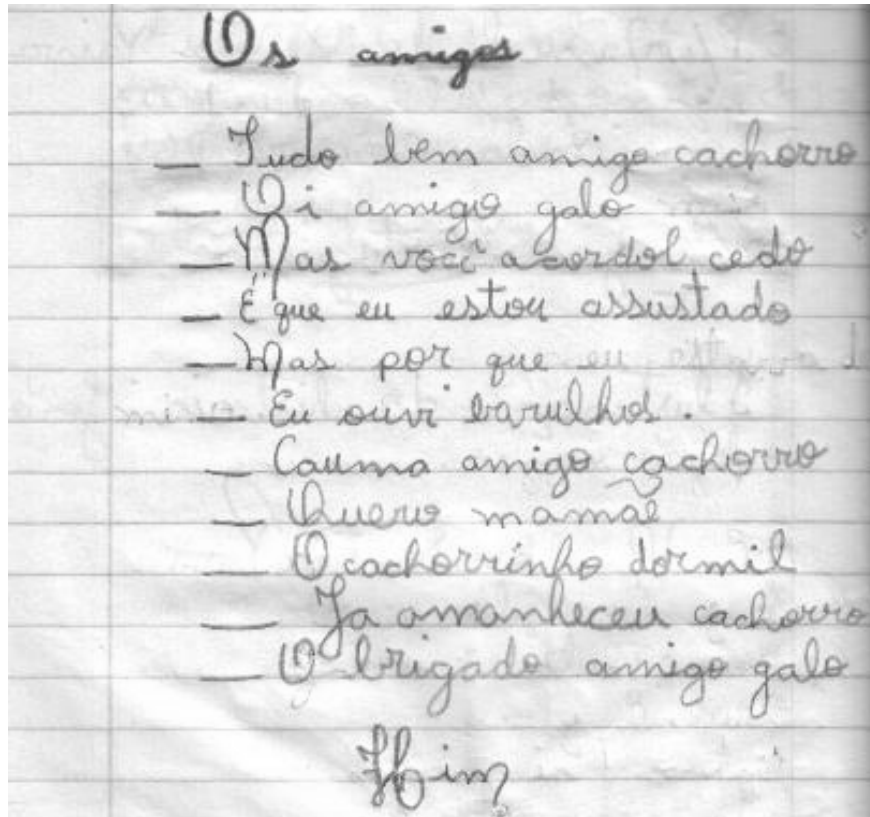 Os amigos
— Tudo bem amigo cachorro
— Oi amigo galo
— Mas você acordol cedo
— É que eu estou assustado
— Mas por que
— Eu ouvi barulhos.
— Cauma amigo cachorro
— Quero mamãe
— O cachorrinho dormil
— Ja amanheceu cachorro
— Obrigado amigo galo
Fim